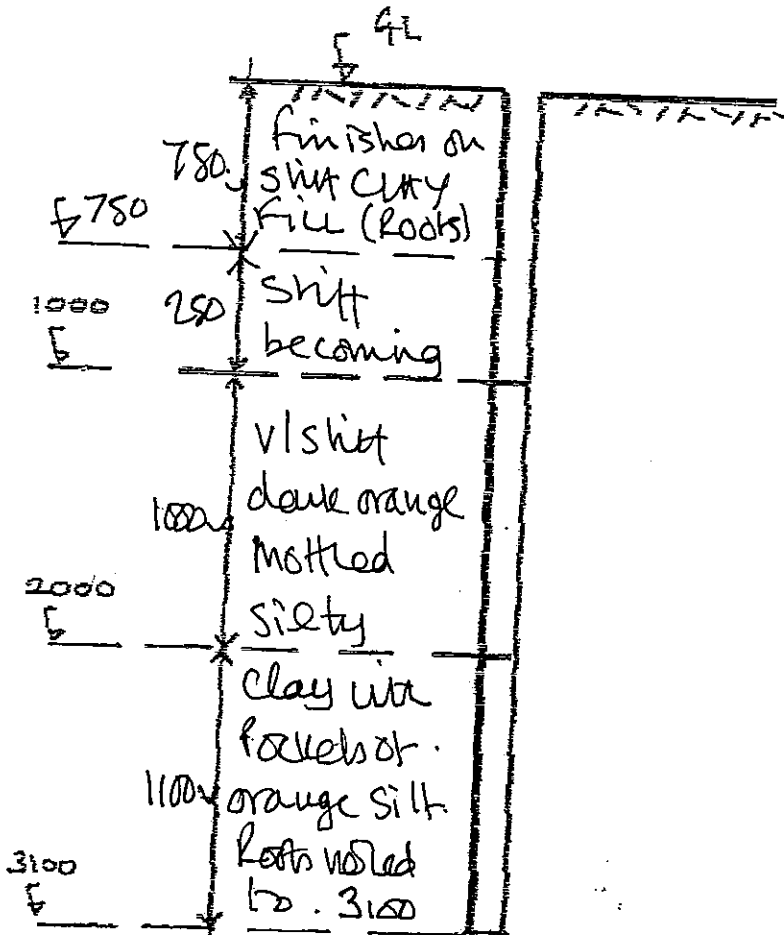 GL
finishes on
750
stiff CLAY
750
Fill (Roots)
1000
250
Stiff
becoming
v/stiff
1000
dark orange
Mottled
2000
silty
Clay with
Pockets of
1100
orange silt.
Roots noted
3100
to. 3100